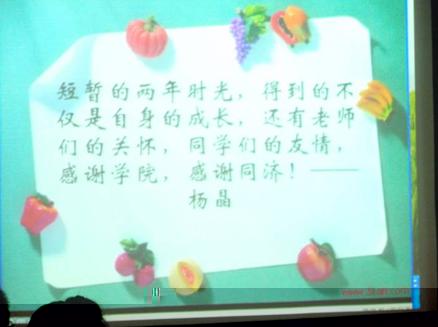 短暂的两年时光，得到的不
仅是自身的成长，还有老师
们的关怀，同学们的友情，
感谢学院，感谢同济！——
杨晶